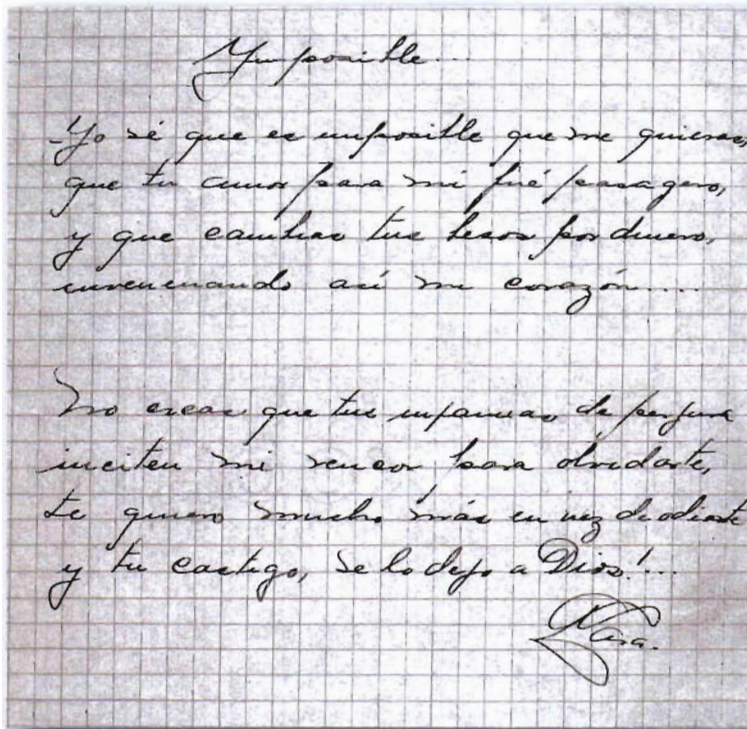 Ymposible...
Yo sé que es imposible que me quieras,
que tu amor para mi fué pasagero,
y que cambias tus besos por dinero,
envenenando asi mi corazón....
No creas que tus infamias de perjura
inciten mi rencor para olvidarte,
te quiero mucho más en vez de odiarte
y tu castigo, se lo dejo a Dios!...
Lara.